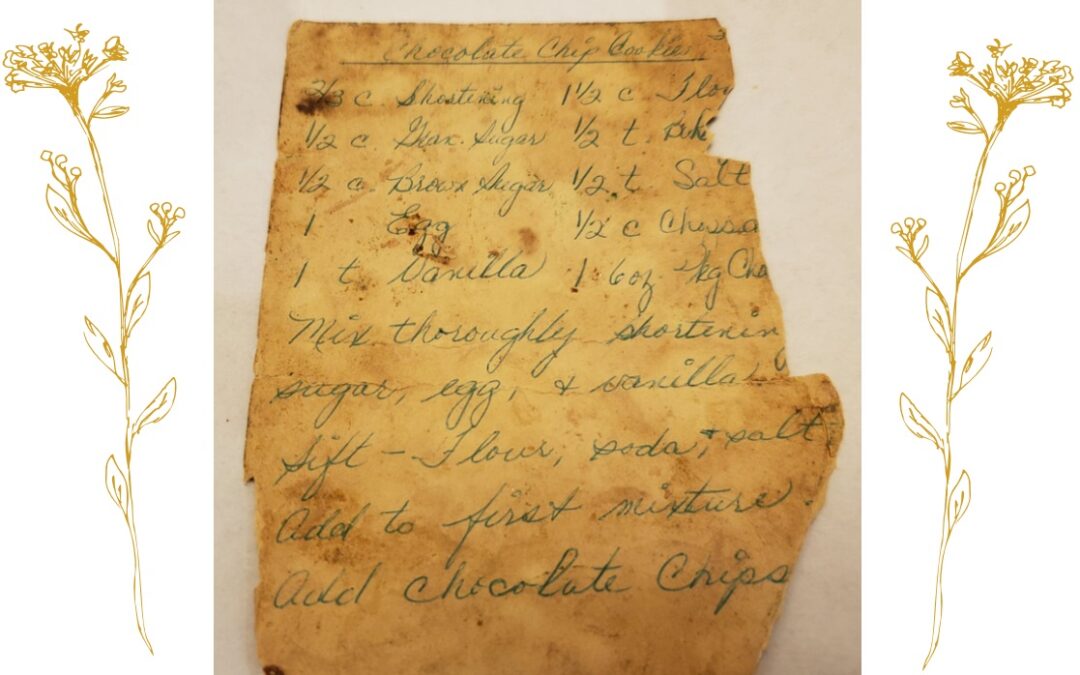 Chocolate Chip Cookies
2/3 c. Shortening 1 1/2 c. Flou
1/2 c. Gran. Sugar 1/2 t.
1/2 c. Brown Sugar 1/2 t Salt
1 Egg 1/2 c
1 t Vanilla 1 6 oz pkg Cho
Mix thoroughly shortening
sugar, egg, & vanilla
Sift - Flour, soda, & salt
Add to first mixture.
Add chocolate Chips